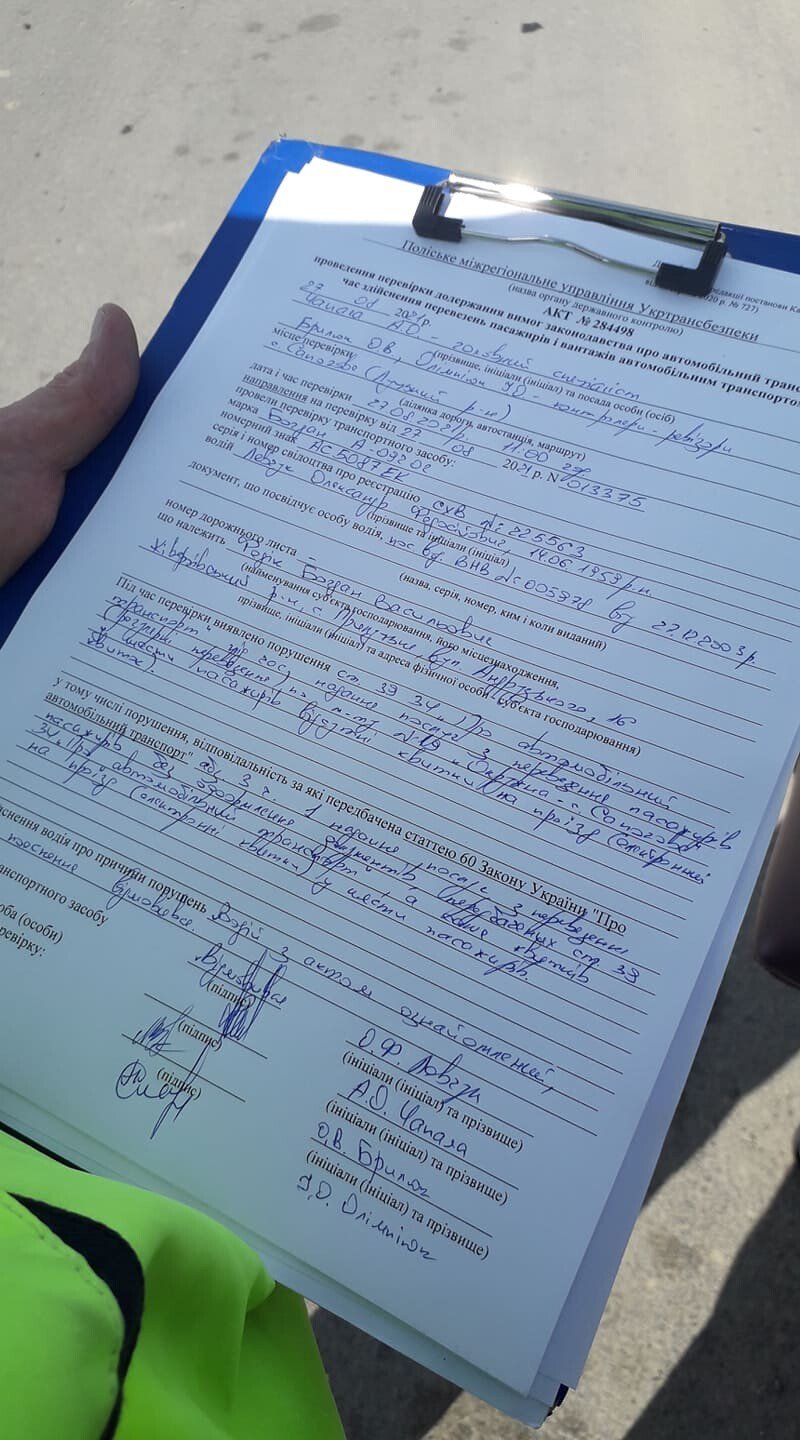 редакції постанови Ка
2020 р. № 727)
Поліське міжрегіональне управління Укртрансбезпеки
(назва органу державного контролю)
АКТ № 284498
проведення перевірки додержання вимог законодавства про автомобільний транс
час здійснення перевезень пасажирів і вантажів автомобільним транспортом
27 08 2021р.
Чапала А.О. - головний спеціаліст
(прізвище, ініціали (ініціал) та посада особи (осіб)
Брилюк О.В., Олімпіюк У.О - контролери-ревізори
місце перевірки
с. Сапогове (Луцький р-н)
(ділянка дороги, автостанція, маршрут)
дата і час перевірки 27.08.2021р. 11:00
направлення на перевірку від 27 08 2021 р. N 013375
провели перевірку транспортного засобу:
марка Богдан А-09202
номерний знак АС5087ЕК
серія і номер свідоцтва про реєстрацію СХВ № 225563
водій Олександр 14.06.1959р.н.
(прізвище та ініціали (ініціал)
документ, що посвідчує особу водія, пос. вод. ВНВ №005978 від 27.12.2003р
(назва, серія, номер, ким і коли виданий)
номер дорожнього листа –
що належить Богдан Васильович
(найменування суб'єкта господарювання, його місцезнаходження,
Ківерцівський р-н, с. вул. 16
прізвище, ініціали (ініціал) та адреса фізичної особи - суб'єкта господарювання)
Під час перевірки виявлено порушення ст. 39 34 „Про автомобільний
транспорт" під час надання послуг з перевезення пасажирів
перевезення на м-ті „Окружна - с. Сапогове"
у шести пасажирів відсутні квитки на проїзд (електронні
квитки).
у тому числі порушення, відповідальність за які передбачена статтею 60 Закону України "Про
автомобільний транспорт" абз. 3 ч. 1 надання послуг з перевезення
пасажирів без оформлення документів, передбачених ст. 39
ЗУ „Про автомобільний транспорт", а саме квитків
на проїзд (електронні квитки) у шести пасажирів.
снення водія про причини порушень Водій з актом ознайомлений,
пояснення відмовився.
ранспортного засобу
оба (особи)
еревірку:
(підпис)
(підпис)
(підпис)
О.Ф
(ініціали (ініціал) та прізвище)
А.О. Чапала
(ініціали (ініціал) та прізвище)
О.В. Брилюк
(ініціали (ініціал) та прізвище)
У.О. Олімпіюк